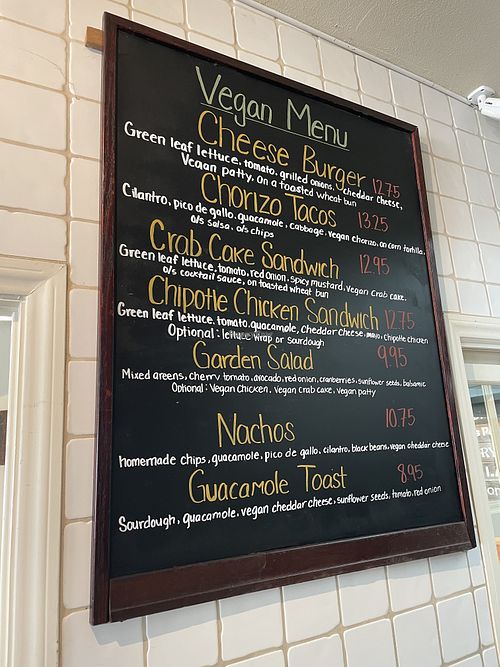 Vegan Menu
Cheese Burger 12.75
Green leaf lettuce, tomato, grilled onions, cheddar cheese,
Vegan patty, on a toasted wheat bun
Chorizo Tacos 13.25
Cilantro, pico de gallo, guacamole, cabbage, vegan chorizo, on corn tortilla,
o/s salsa, o/s chips
Crab Cake Sandwich 12.95
Green leaf lettuce, tomato, red onion, spicy mustard, vegan crab cake,
o/s cocktail sauce, on toasted wheat bun
Chipotle Chicken Sandwich 12.75
Green leaf lettuce, tomato, guacamole, cheddar cheese, mayo, chipotle chicken
Optional: lettuce wrap or sourdough
Garden Salad 9.95
Mixed greens, cherry tomato, avocado, red onion, cranberries, sunflower seeds, balsamic
Optional: Vegan chicken, vegan crab cake, vegan patty
Nachos 10.75
homemade chips, guacamole, pico de gallo, cilantro, black beans, vegan cheddar cheese
Guacamole Toast 8.95
Sourdough, guacamole, vegan cheddar cheese, sunflower seeds, tomato, red onion